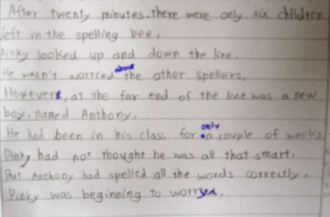 After twenty minutes, there were only six children
left in the spelling bee.
Dinky looked up and down the line.
He wasn't worried about the other spellers.
However, at the far end of the line was a new
boy, named Anthony.
He had been in his class for only a couple of weeks.
Dinky had not thought he was all that smart.
But Anthony had spelled all the words correctly.
Dinky was beginning to worry.